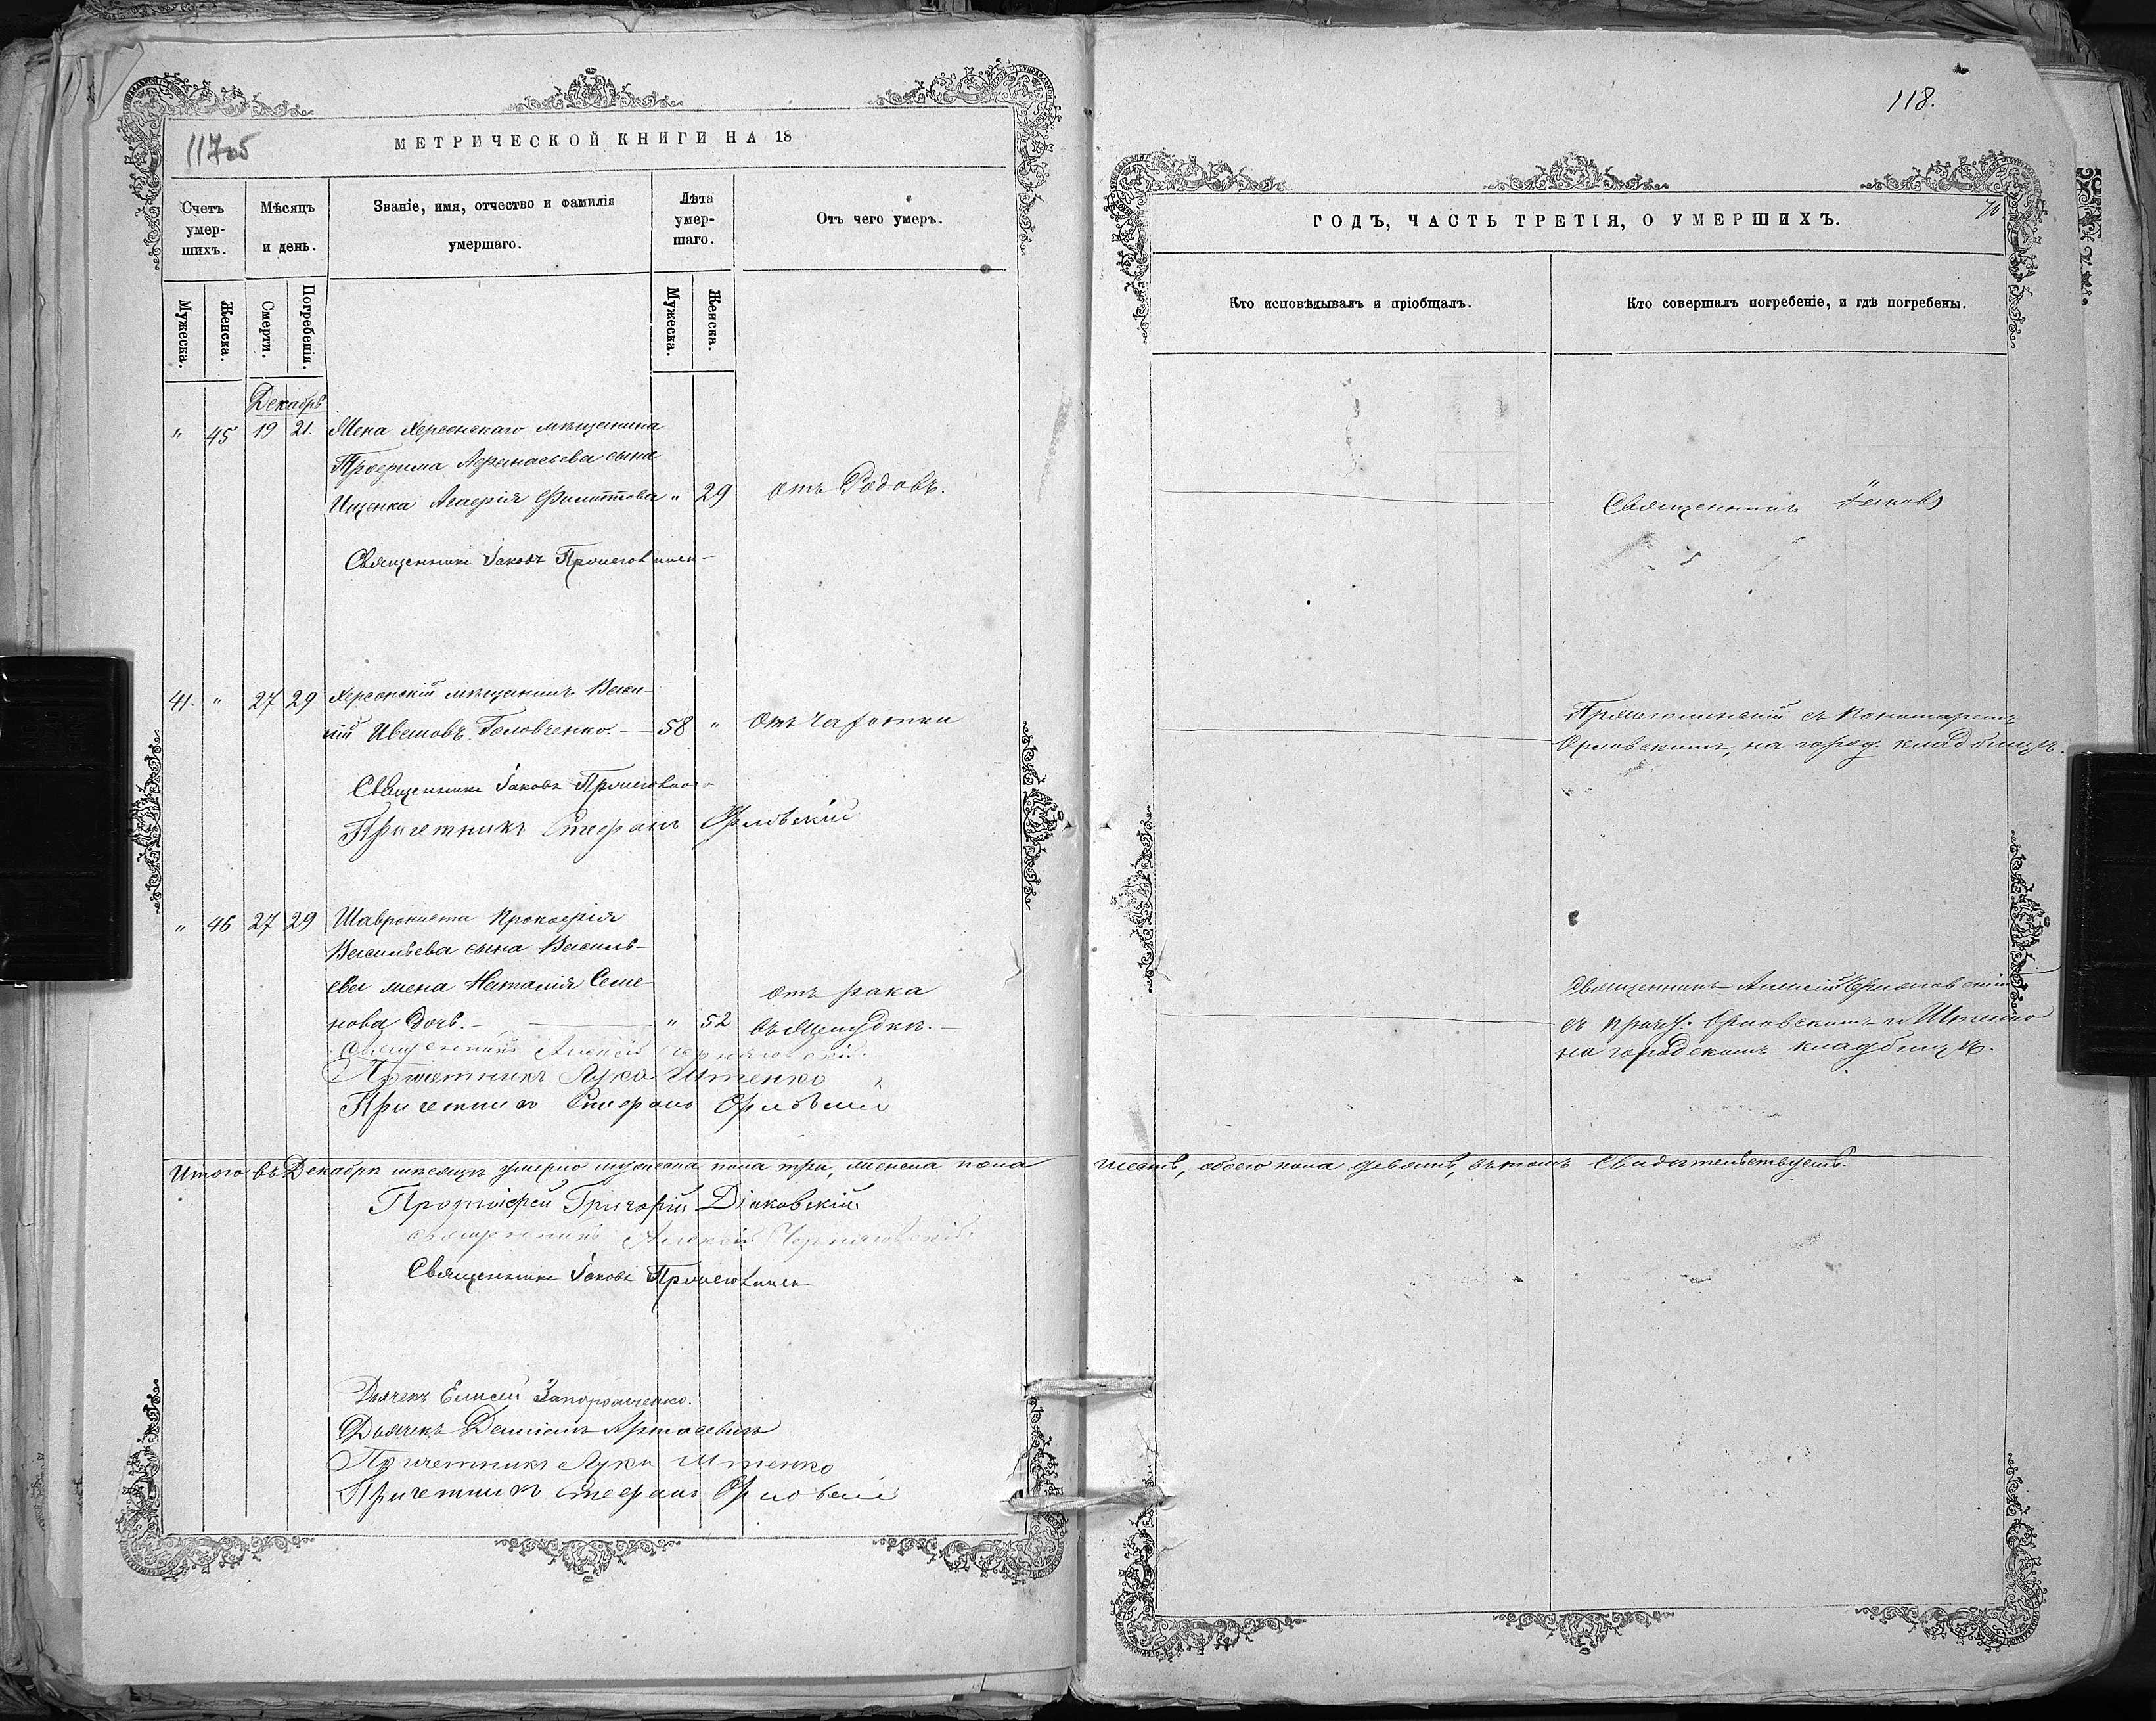 117об
МЕТРИЧЕСКОЙ КНИГИ НА 18
Счетъ умер-шихъ.
Мѣсяцъ и день.
Званіе, имя, отчество и фамилія умершаго.
Лѣта умер-шаго.
Отъ чего умеръ.
Мужеска.
Женска.
Смерти.
Погребенія.
Мужеска.
Женска.
Декабрь
" 45 19 21. Жена Херсонскаго мѣщанина
Трофима Афанасьева сына
Ищенка Агафія Филиппова " 29 отъ Родовъ.
Священникъ Іаковъ
41. " 27 29 Херсонскій мѣщанинъ Васи-
лій Ивановъ Головченко. 58. " Отъ чахотки
Священникъ Іаковъ
Причетникъ Стефанъ Орловскій
" 46 27 29 Прокофія
Васильева сына Василь-
ева жена Наталія Семе-
нова дочь. " 52 отъ рака
въ желудкѣ.
Священникъ Алексій
Причетникъ Лука Штенко
Причетникъ Стефанъ Орловскій
Итого въ Декабрѣ мѣсяцѣ умерло мужеска пола три, женска пола
Протоіерей Григорій Діаковскій
Священникъ Алексій
Священникъ Іаковъ
Дьячекъ Елисей Запорожченко.
Дьячекъ
Причетникъ Лука Штенко
Причетникъ Стефанъ Орловскій
118.
ГОДЪ, ЧАСТЬ ТРЕТІЯ, О УМЕРШИХЪ.
Кто исповѣдывалъ и пріобщалъ.
Кто совершалъ погребеніе, и гдѣ погребены.
Священникъ Іаковъ
съ Пономаремъ
Орловскимъ, на город. кладбищѣ.
Священникъ Алексій
съ прич. Орловскимъ и Штенко
на городскомъ кладбищѣ.
шесть, обоего пола девять, въ томъ свидѣтельствуемъ.